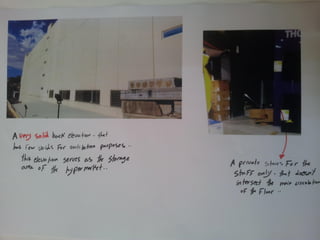 THO
A very solid back elevation - that
has few voids for ventilation purposes -
this elevation serves as the storage
area of the hypermarket..
A private stairs for the
staff only - that doesn't
intersect the main circulation
of the floor ..